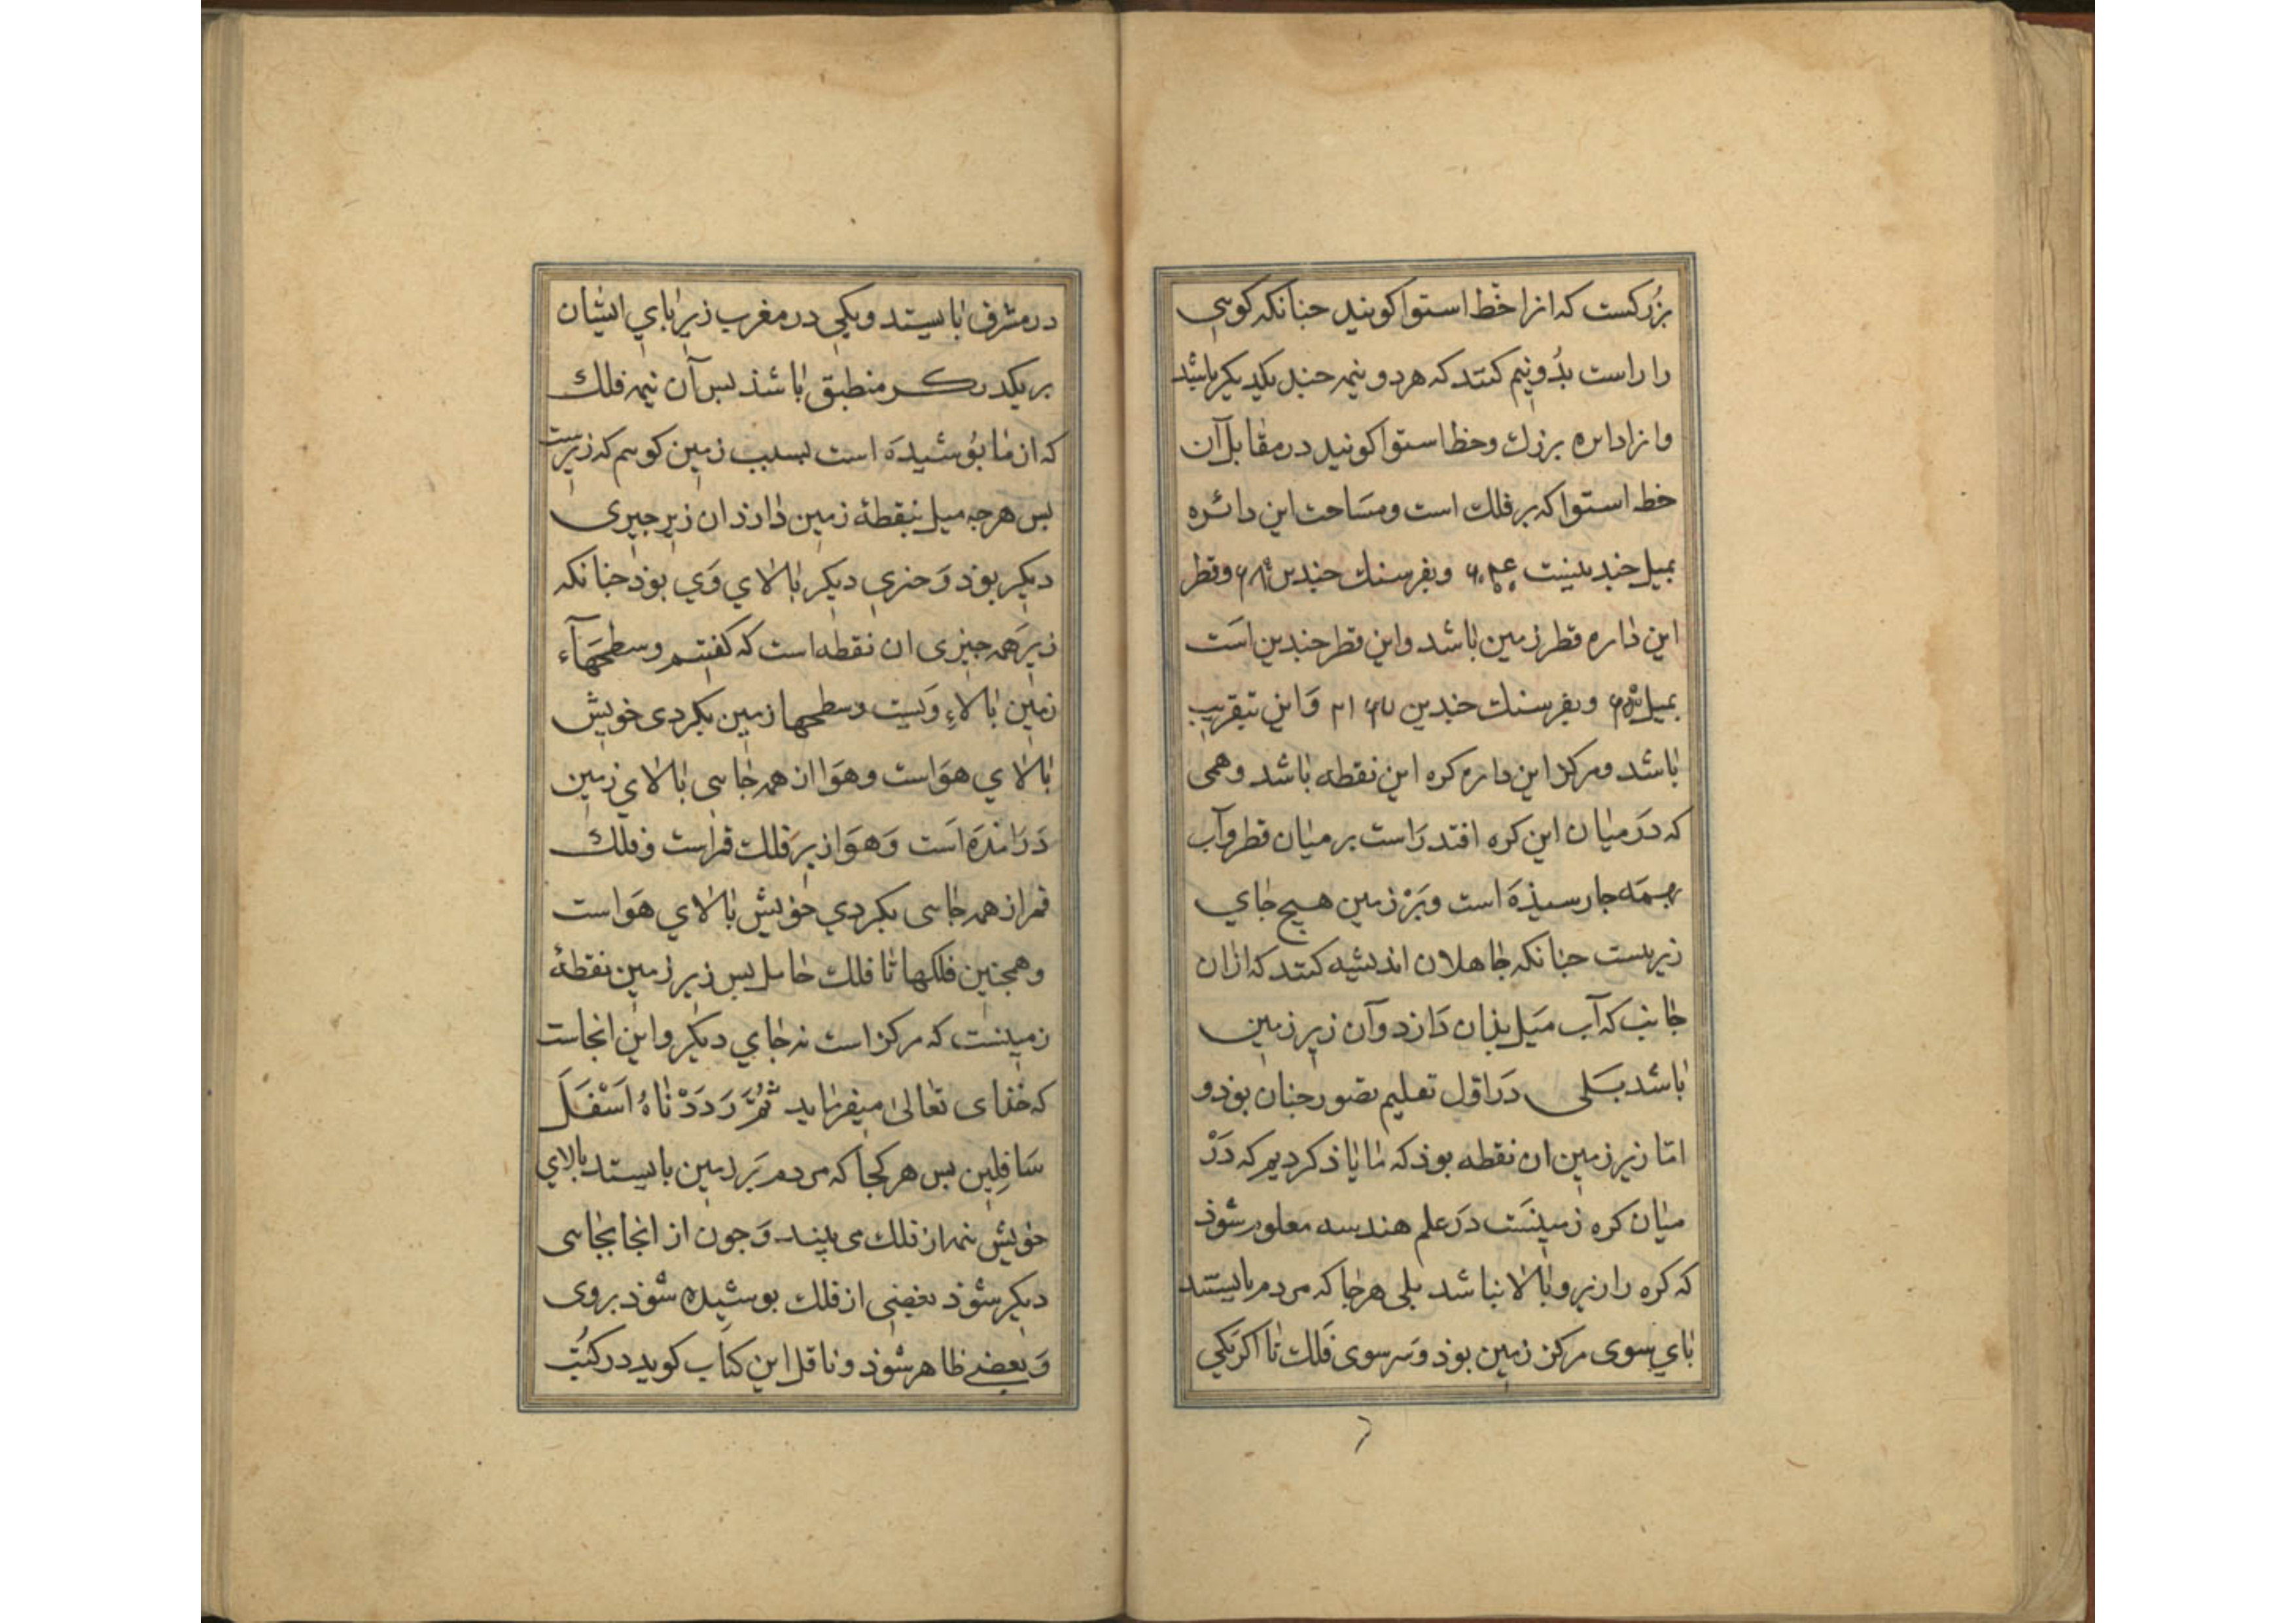 بزرکست که انرا خط استوا کویند جنانکه کویی
را راست بدو نیم کنند که هر دو نیمه جند یکدیکر باشد
وانرا دایره بزرك وخط استوا کویند در مقابل آن
خط استوا که بر فلك است ومساحت این دائره
بمیل جندینست وبفرسنك جندین وقطر
این داره قطر زمین باشد واین قطر جندین است
بمیل وبفرسنك جندین واین بتقریب
باشد ومرکز این داره کره این نقطه باشد وهمی
که در میان این کره افتد راست بر میان قطر وآب
بهمه جا رسیذه است وبر زمین هیج جای
زیر نیست جنانکه جاهلان اندیشه کنند که ازان
جانب که آب میل بذان دارد وآن زیر زمین
باشد بلی در اول تعلیم تصور جنان بوذ و
اما زیر زمین ان نقطه بوذ که ما یاذ کردیم که در
میان کره زمینست در علم هندسه معلوم شوذ
که کره را زیر وبالا نباشد بلی هر جا که مردم بایستند
بای سوی مرکز زمین بوذ وسر سوی فلك تا اکر یکی
در مشرق بایستد ویکی در مغرب زیر بای ایشان
بر یکدیکر منطبق باشذ بس آن نیمه فلك
که از ما بوشیده است بسبب زمین کوییم که زیرست
بس هرجه میل بنقطهٔ زمین دارذ ان زیر جیزی
دیکر بوذ وجیزی دیکر بالای وی بوذ جنانکه
زیر همه جیزی ان نقطه است که کفتیم وسطحهاء
زمین بالاء ویست وسطحها زمین بکردی خویش
بالای هواست وهوا از همه جایی بالای زمین
درامده است وهوا زیر فلك قمراست وفلك
قمر از همه جایی بکردی خویش بالای هواست
وهمجنین فلکها تا فلك حامل بس زیر زمین نقطهٔ
زمینست که مرکز است نه جای دیکر واین انجاست
که خذای تعالی میفرماید ثم رددناه اسفل
سافلین بس هر کجا که مردم بر زمین بایستد بالای
خویش نیمه از فلك می بیند وجون از انجا بجایی
دیکر شوذ بعضی از فلك بوشیده شوذ بروی
وبعضی ظاهر شوذ وناقل این کتاب کوید در کتب